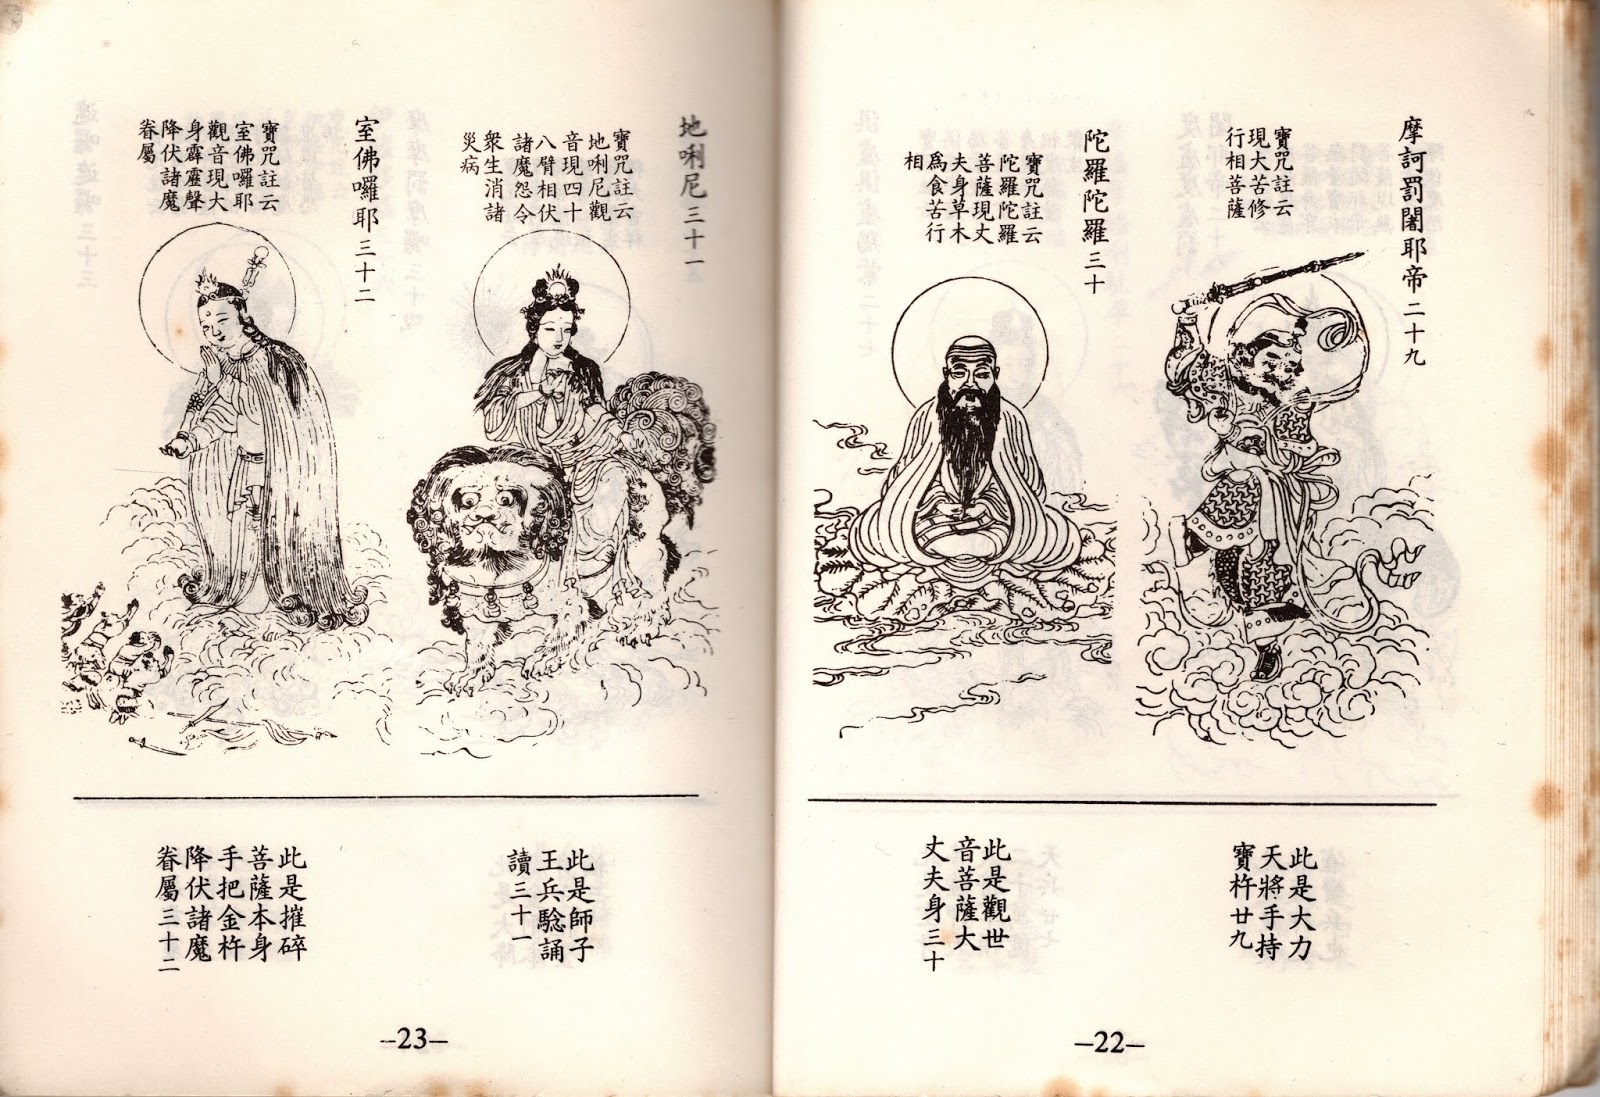 摩訶罰闍耶帝二十九
寶咒註云
現大苦修
行相菩薩
陀羅陀羅三十
寶咒註云
陀羅陀羅
菩薩現丈
夫身草木
爲食苦行
相
此是大力
天將手持
寶杵廿九
此是觀世
音菩薩大
丈夫身三十
—22—
地唎尼三十一
寶咒註云
地唎尼觀
音現四十
八臂相伏
諸魔怨令
衆生消諸
災病
室佛囉耶三十二
寶咒註云
室佛囉耶
觀音現大
身霹靂聲
降伏諸魔
眷屬
此是師子
王兵騐誦
讀三十一
此是摧碎
菩薩本身
手把金杵
降伏諸魔
眷屬三十二
—23—